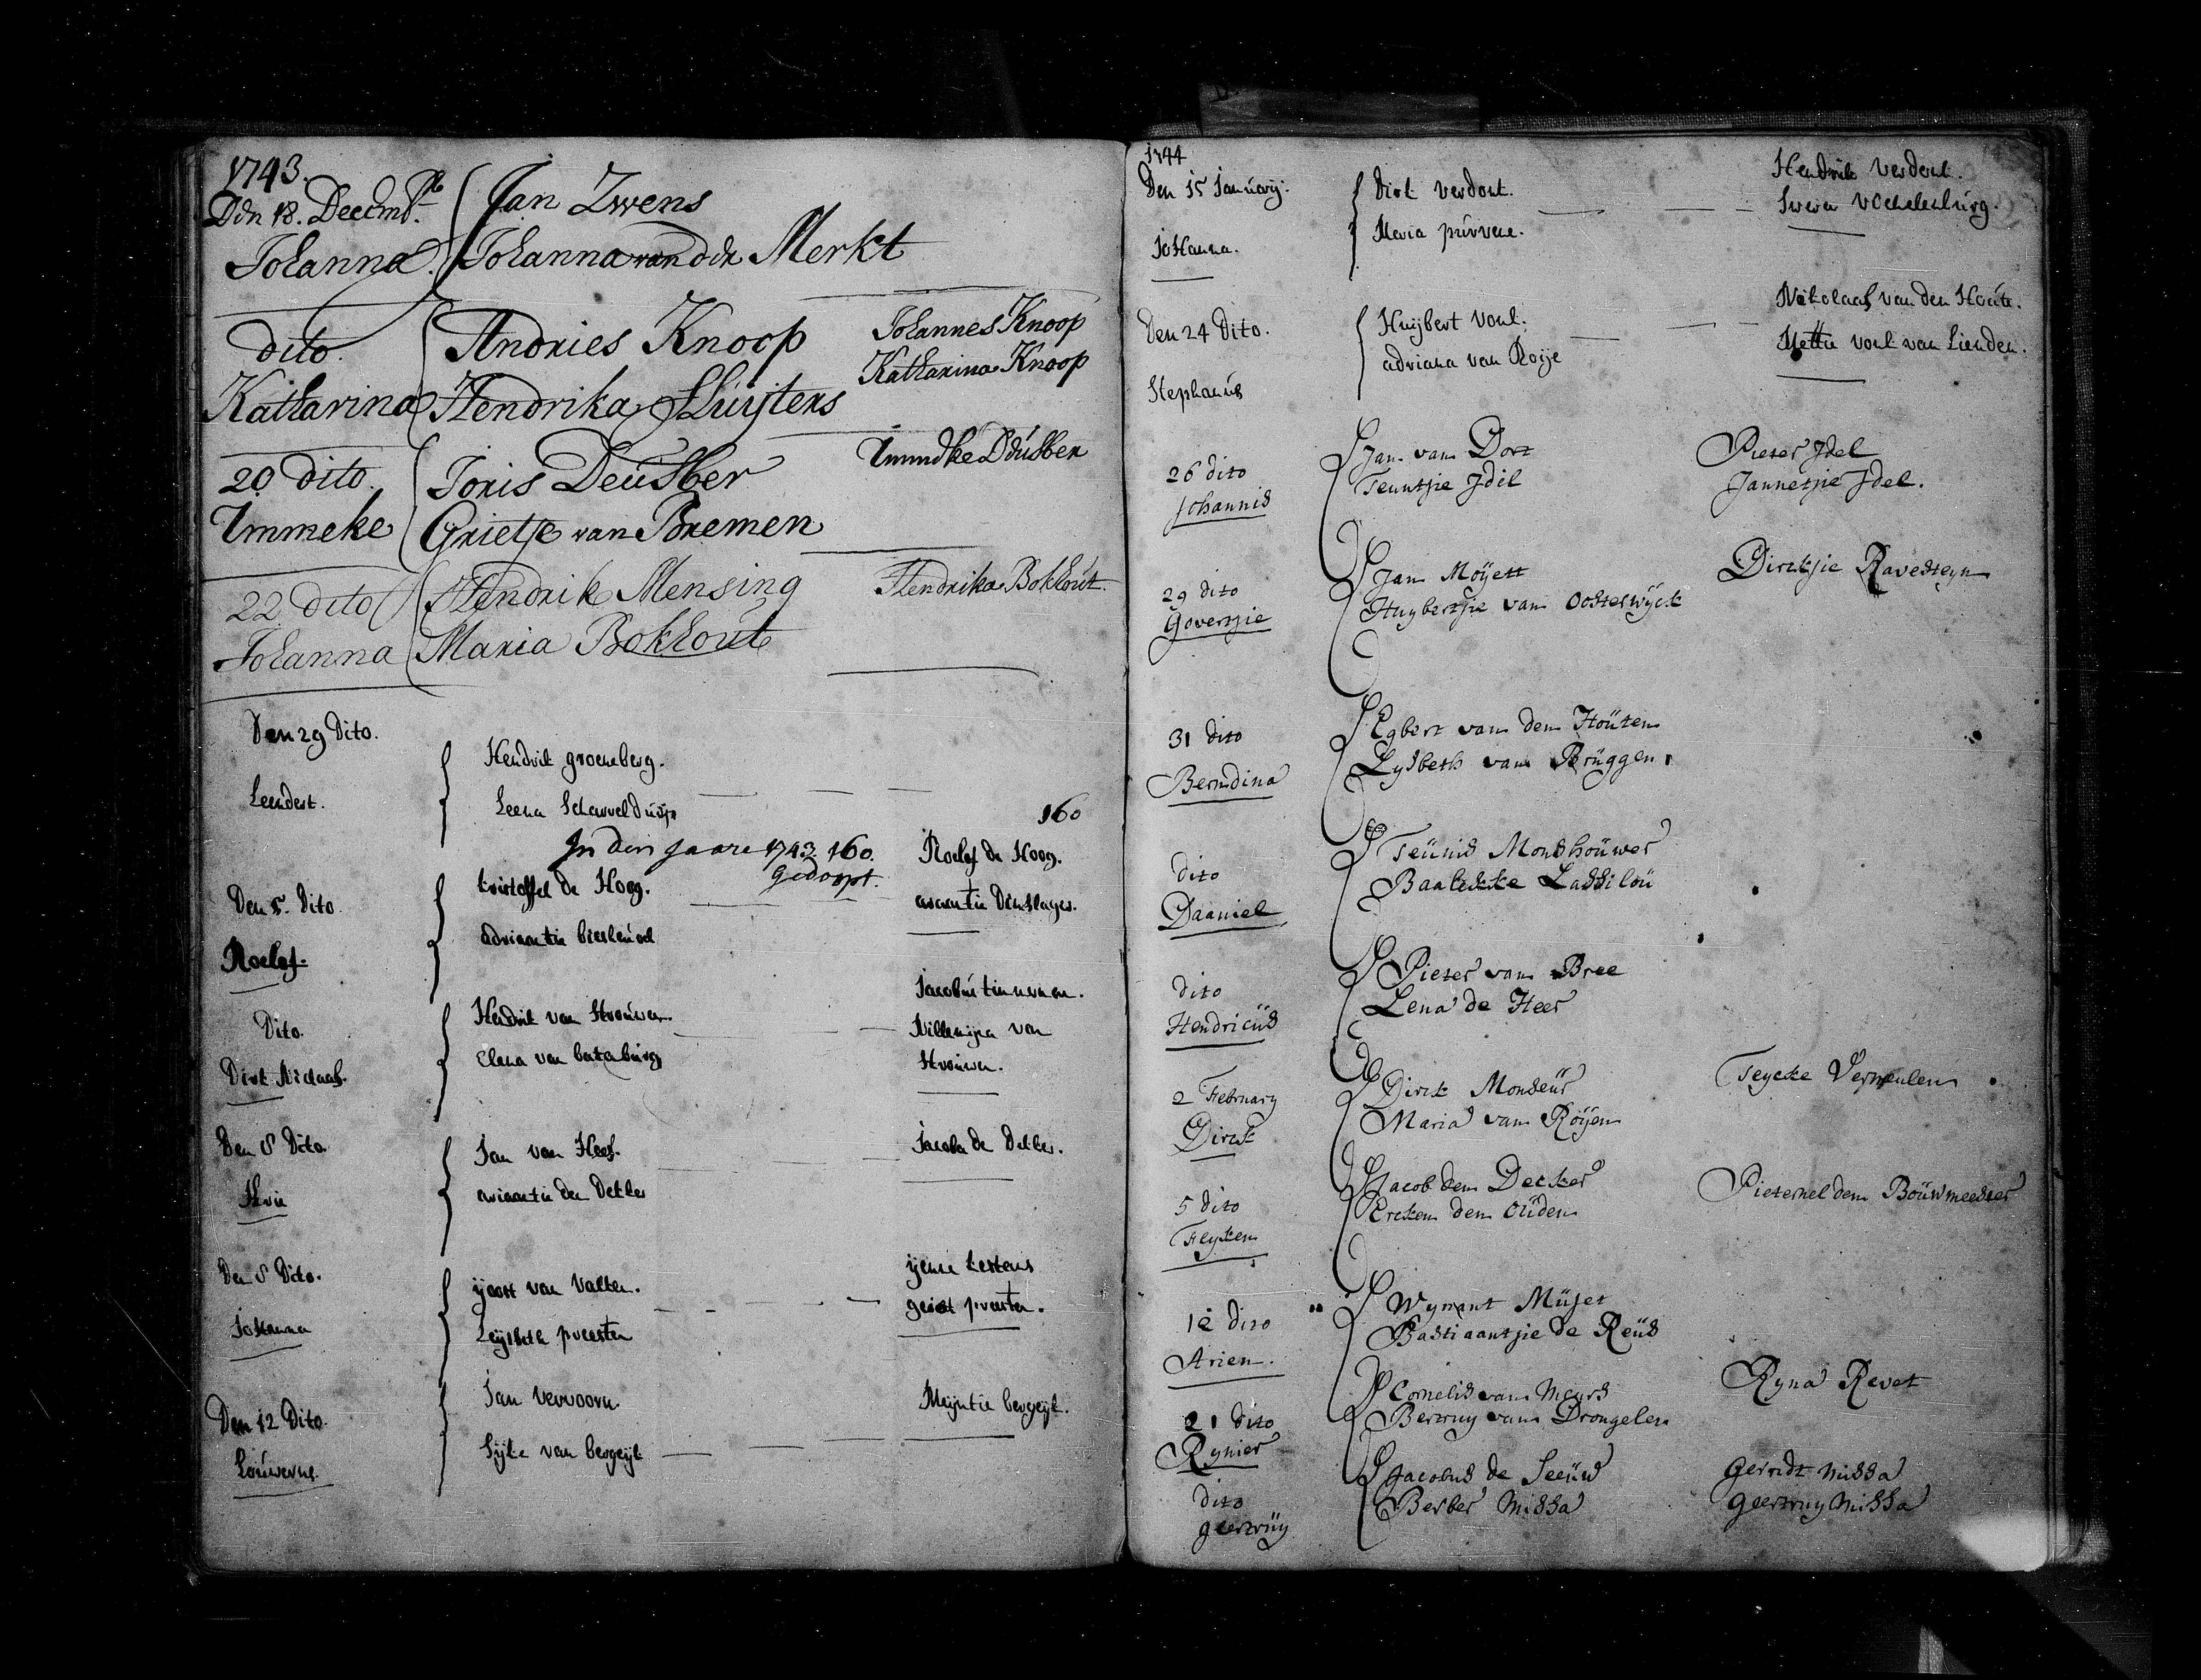 1743.
Den 18. Decemb.
Johanna.
Jan Zwens
Johanna van der Merkt
dito.
Katharina
Andries Knoop
Hendrika Sluijters
Johannes Knoop
Katharina Knoop
20 dito.
Immeke
Joris Deusber
Grietje van Bremen
Immeke Deusber
22 dito
Johanna
Hendrik Mensing
Maria Bokhout
Hendrika Bokhout.
Den 29 Dito.
Leendert.
Hendrik groeneberg.
Leena Scharvelduijn
160
In den jaare 1743. 160.
gedoopt.
Den 5. Dito.
Roelof.
kristoffel de Hoog.
adriaantie
Roelof de Hoog.
Dito.
Dirk Niclaas.
Hendrik van Strouwen.
Elena van bataburg
Willemijna van
Strouwen.
Den 8 Dito.
Jan van Heef.
ariaantie den Dekker
Jacoba de Dekker.
Den 8 Dito.
Johanna
ijoost van Valken.
Leijsbeth preester
geriet preester.
Den 12 Dito.
Louwerens.
Jan Vervoorn.
Sijke van bergeijk
Meijntie bergeijk.
1744
Den 15 January.
JoHanna.
Dirk verdont.
Maria
Hendrik verdont.
Den 24 Dito.
Stephanus
Huijbert vonk.
adriana van Roije
Nikolaas van den Houte.
Mettie vonk van Lienden.
26 dito
Johannis
Jan van Dort
Teuntjie Jdel
Pieter Jdel
Jannetjie Jdel.
29 dito
Govertjie
Jan Moÿett
Huybertjie van Oosterwyck
Dircksjie Ravesteyn
31 dito
Berndina
Egbert van den Houten
Lysbeth van Brüggen
dito
Daaniel
Teünis Monshoüwer
Baaleckke Lassiloü
dito
Hendricüs
Pieter van Bree
Lena de Heer
2 February
Dirck
Dirck Monseür
Maria van Röyen
Teycke Vermeulen
5 dito
Feyken
Jacob den Decker
Ercken den Oüden
Pieternel den Boüwmeester
12 dito
Arien.
Wynant Müset
Bastiaantjie de Reüs
21 dito
Rynier
Cornelis van Meurs
Bertruy van Drongelen
Ryna Revet
dito
geertrüy
Jacobus de Leeüw
Berber Missa
Gerridt Missa
Geertruy Missa